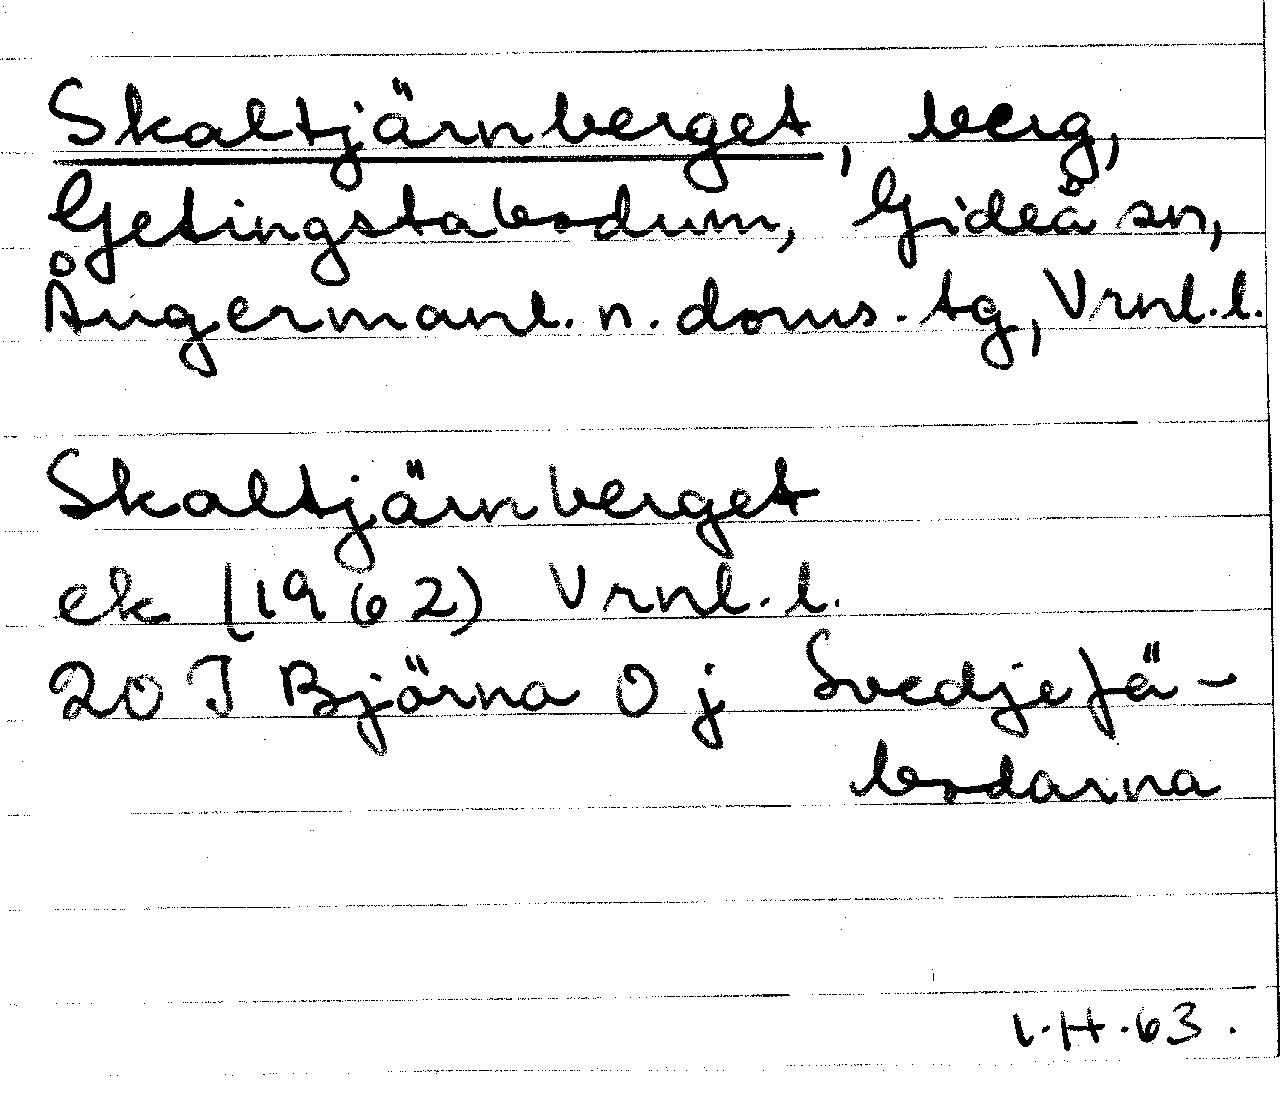 Skaltjärnberget, berg,
Getingstabodum, Gideå sn,
Ångermanl. n. doms. tg, Vrnl. l.
Skaltjärnberget
ek (1962) Vrnl. l.
20 I Björna O j Svedjefä-
bodarna
L.H.63.